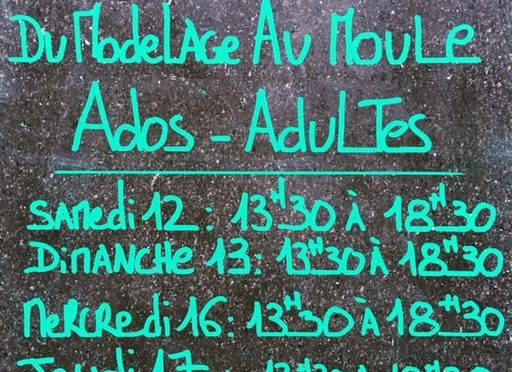 Du ModelAge Au Moule
Ados - Adultes
Samedi 12 : 13H30 À 18H30
Dimanche 13 : 13H30 À 18H30
Mercredi 16 : 13H30 À 18H30
Jeudi 17 : 13H30 À 18H30